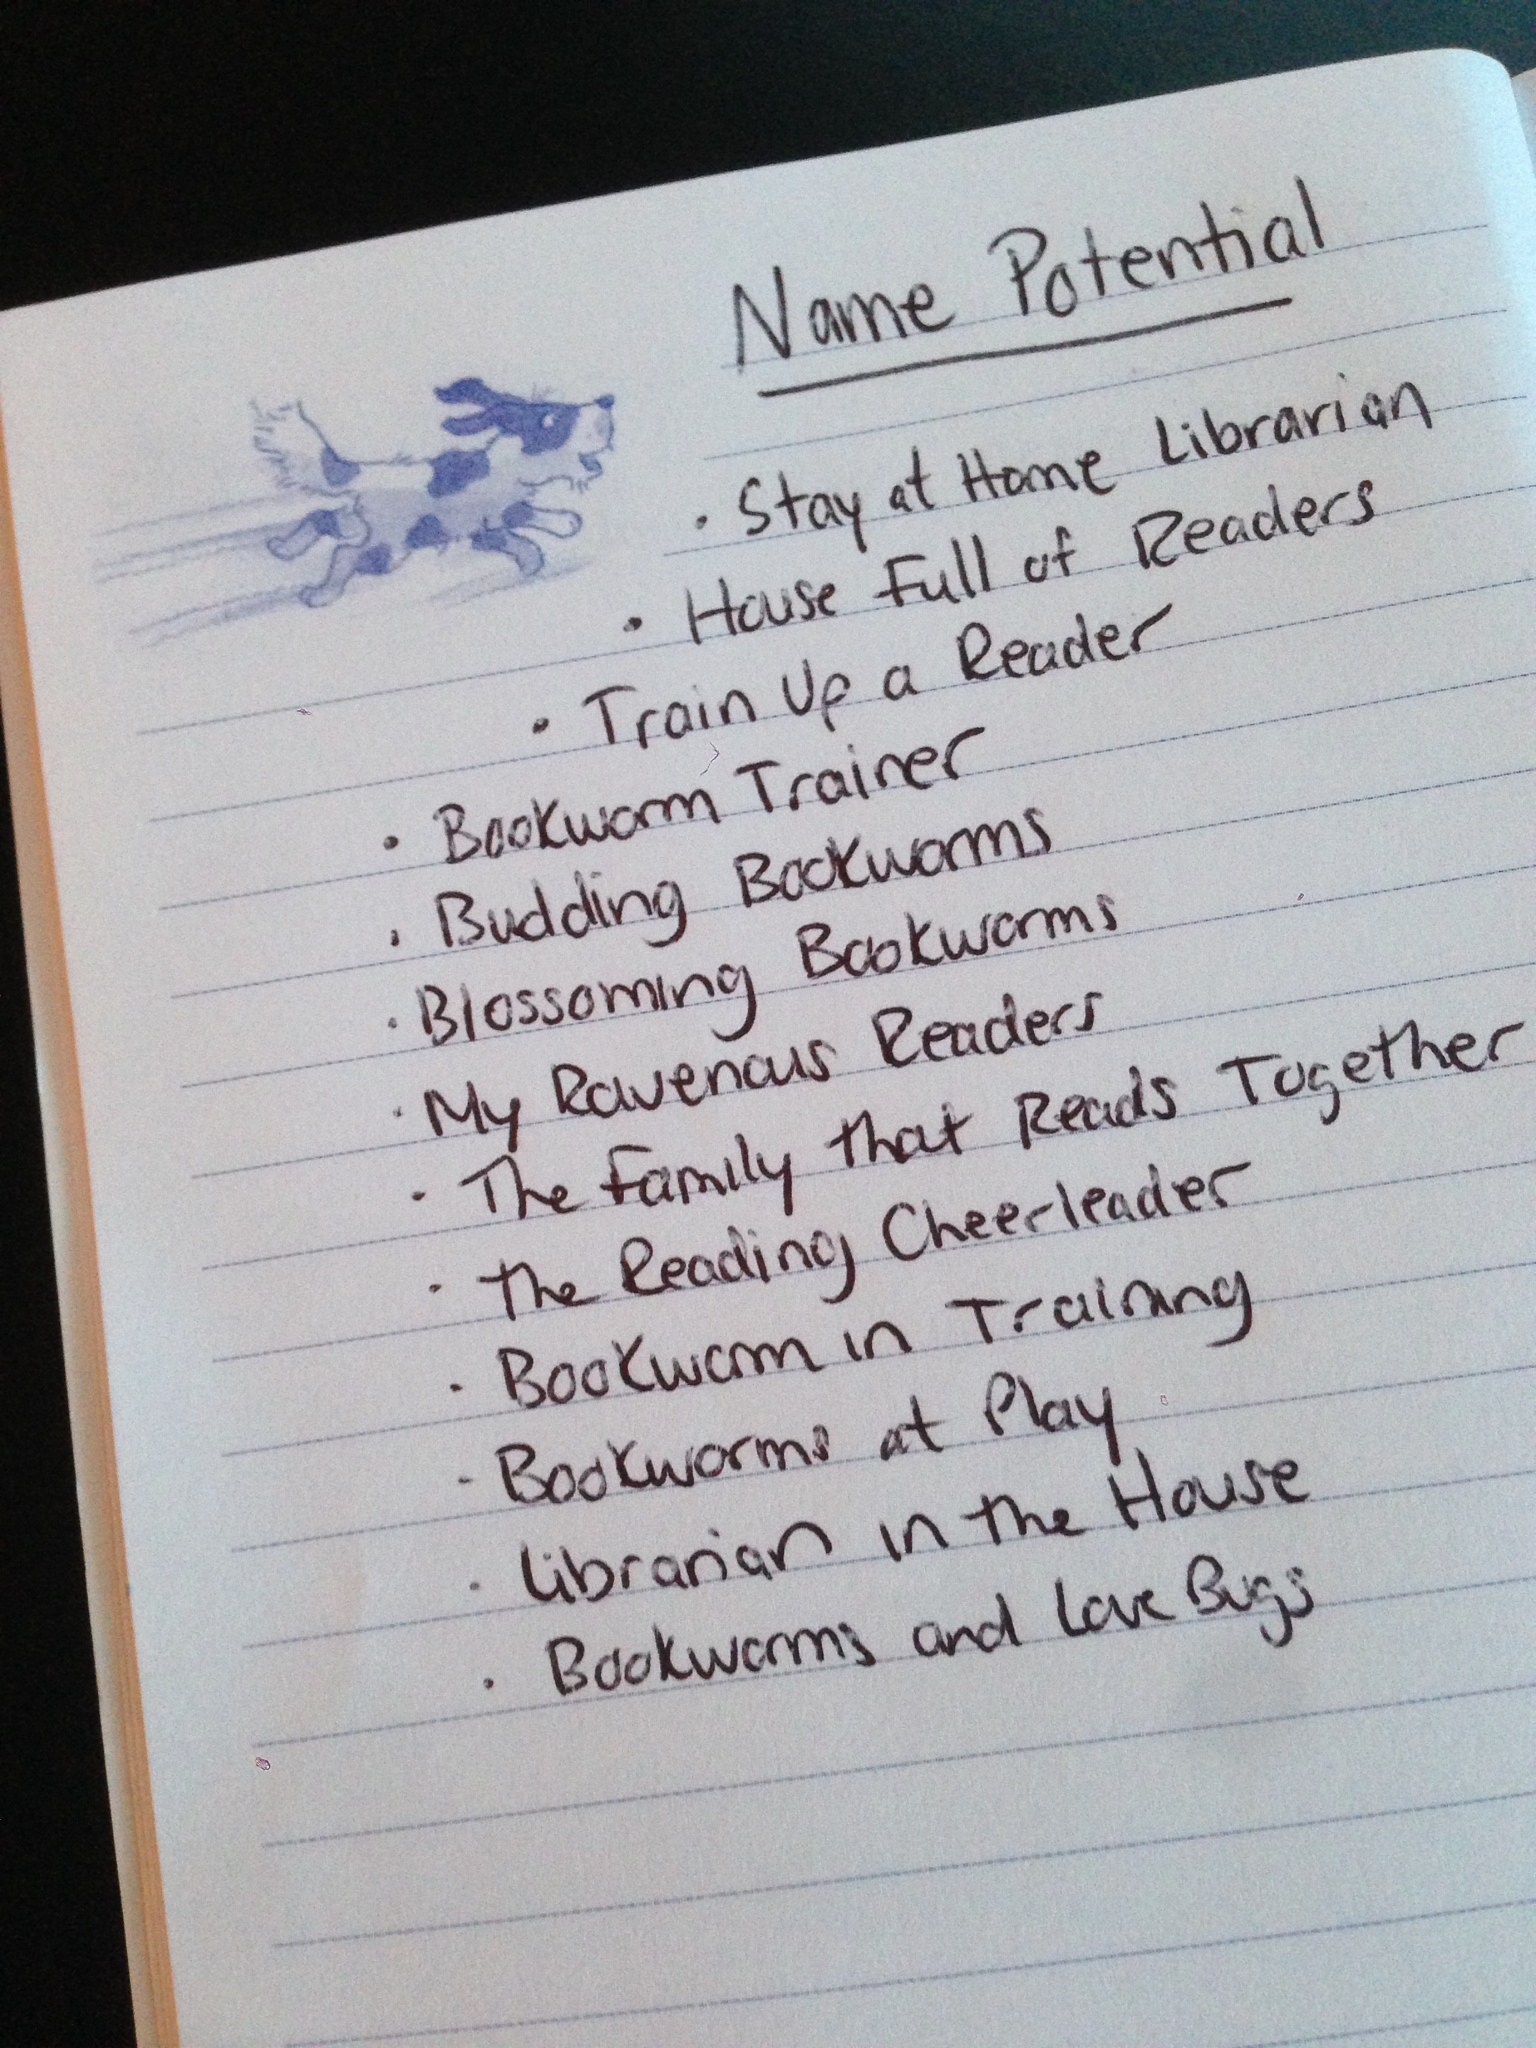 Name Potential
· Stay at Home Librarian
· House Full of Readers
· Train Up a Reader
· Bookworm Trainer
· Budding Bookworms
· Blossoming Bookworms
· My Ravenous Readers
· The Family that Reads Together
· The Reading Cheerleader
· Bookworm in Training
· Bookworms at Play
· Librarian in the House
· Bookworms and Love Bugs